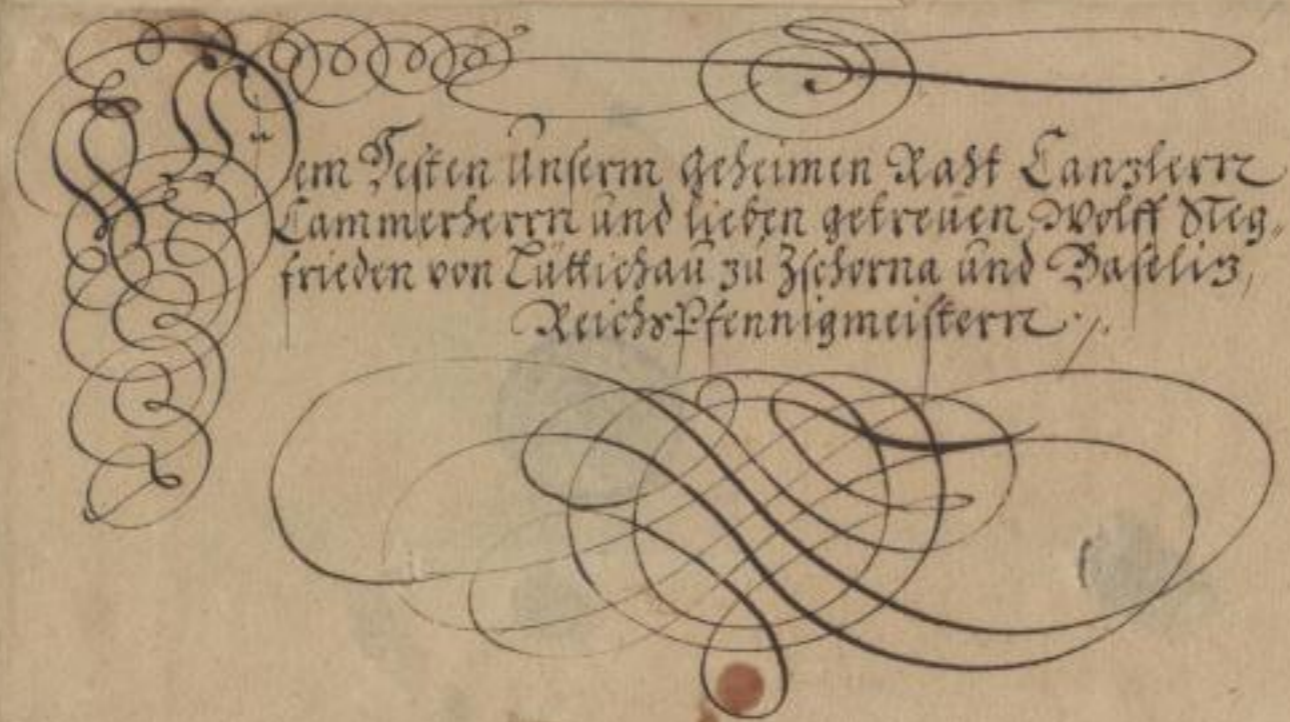 Dem Vesten Unserm geheimen Raht Canzlern
Cammerherrn und lieben getreuen, Wolff Sieg-
frieden von Lüttichau zu Zschorna und Baselitz,
ReichsPfennigmeistern.